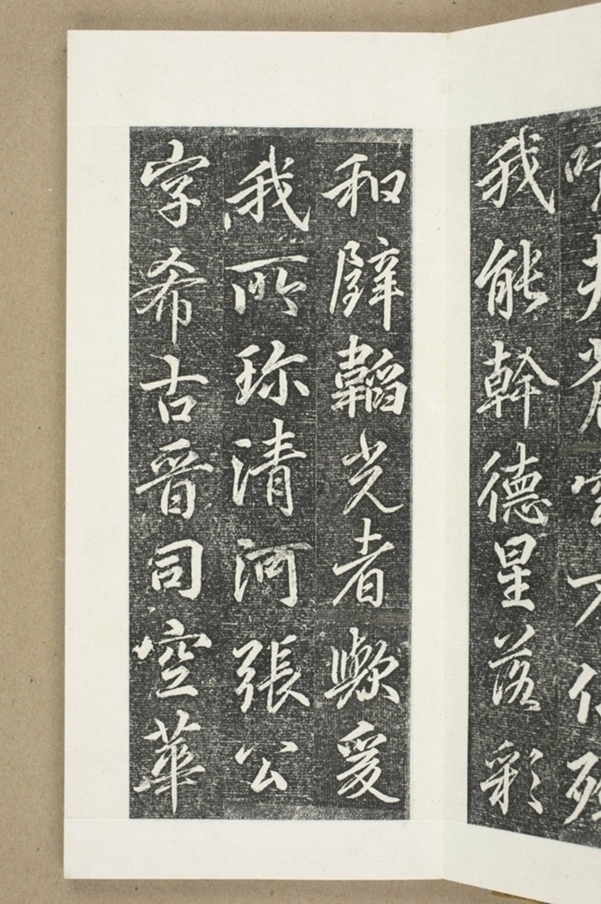 我能幹德星落彩
和璧韜光者歟爰
我所珍清河張公
字希古晉司空華